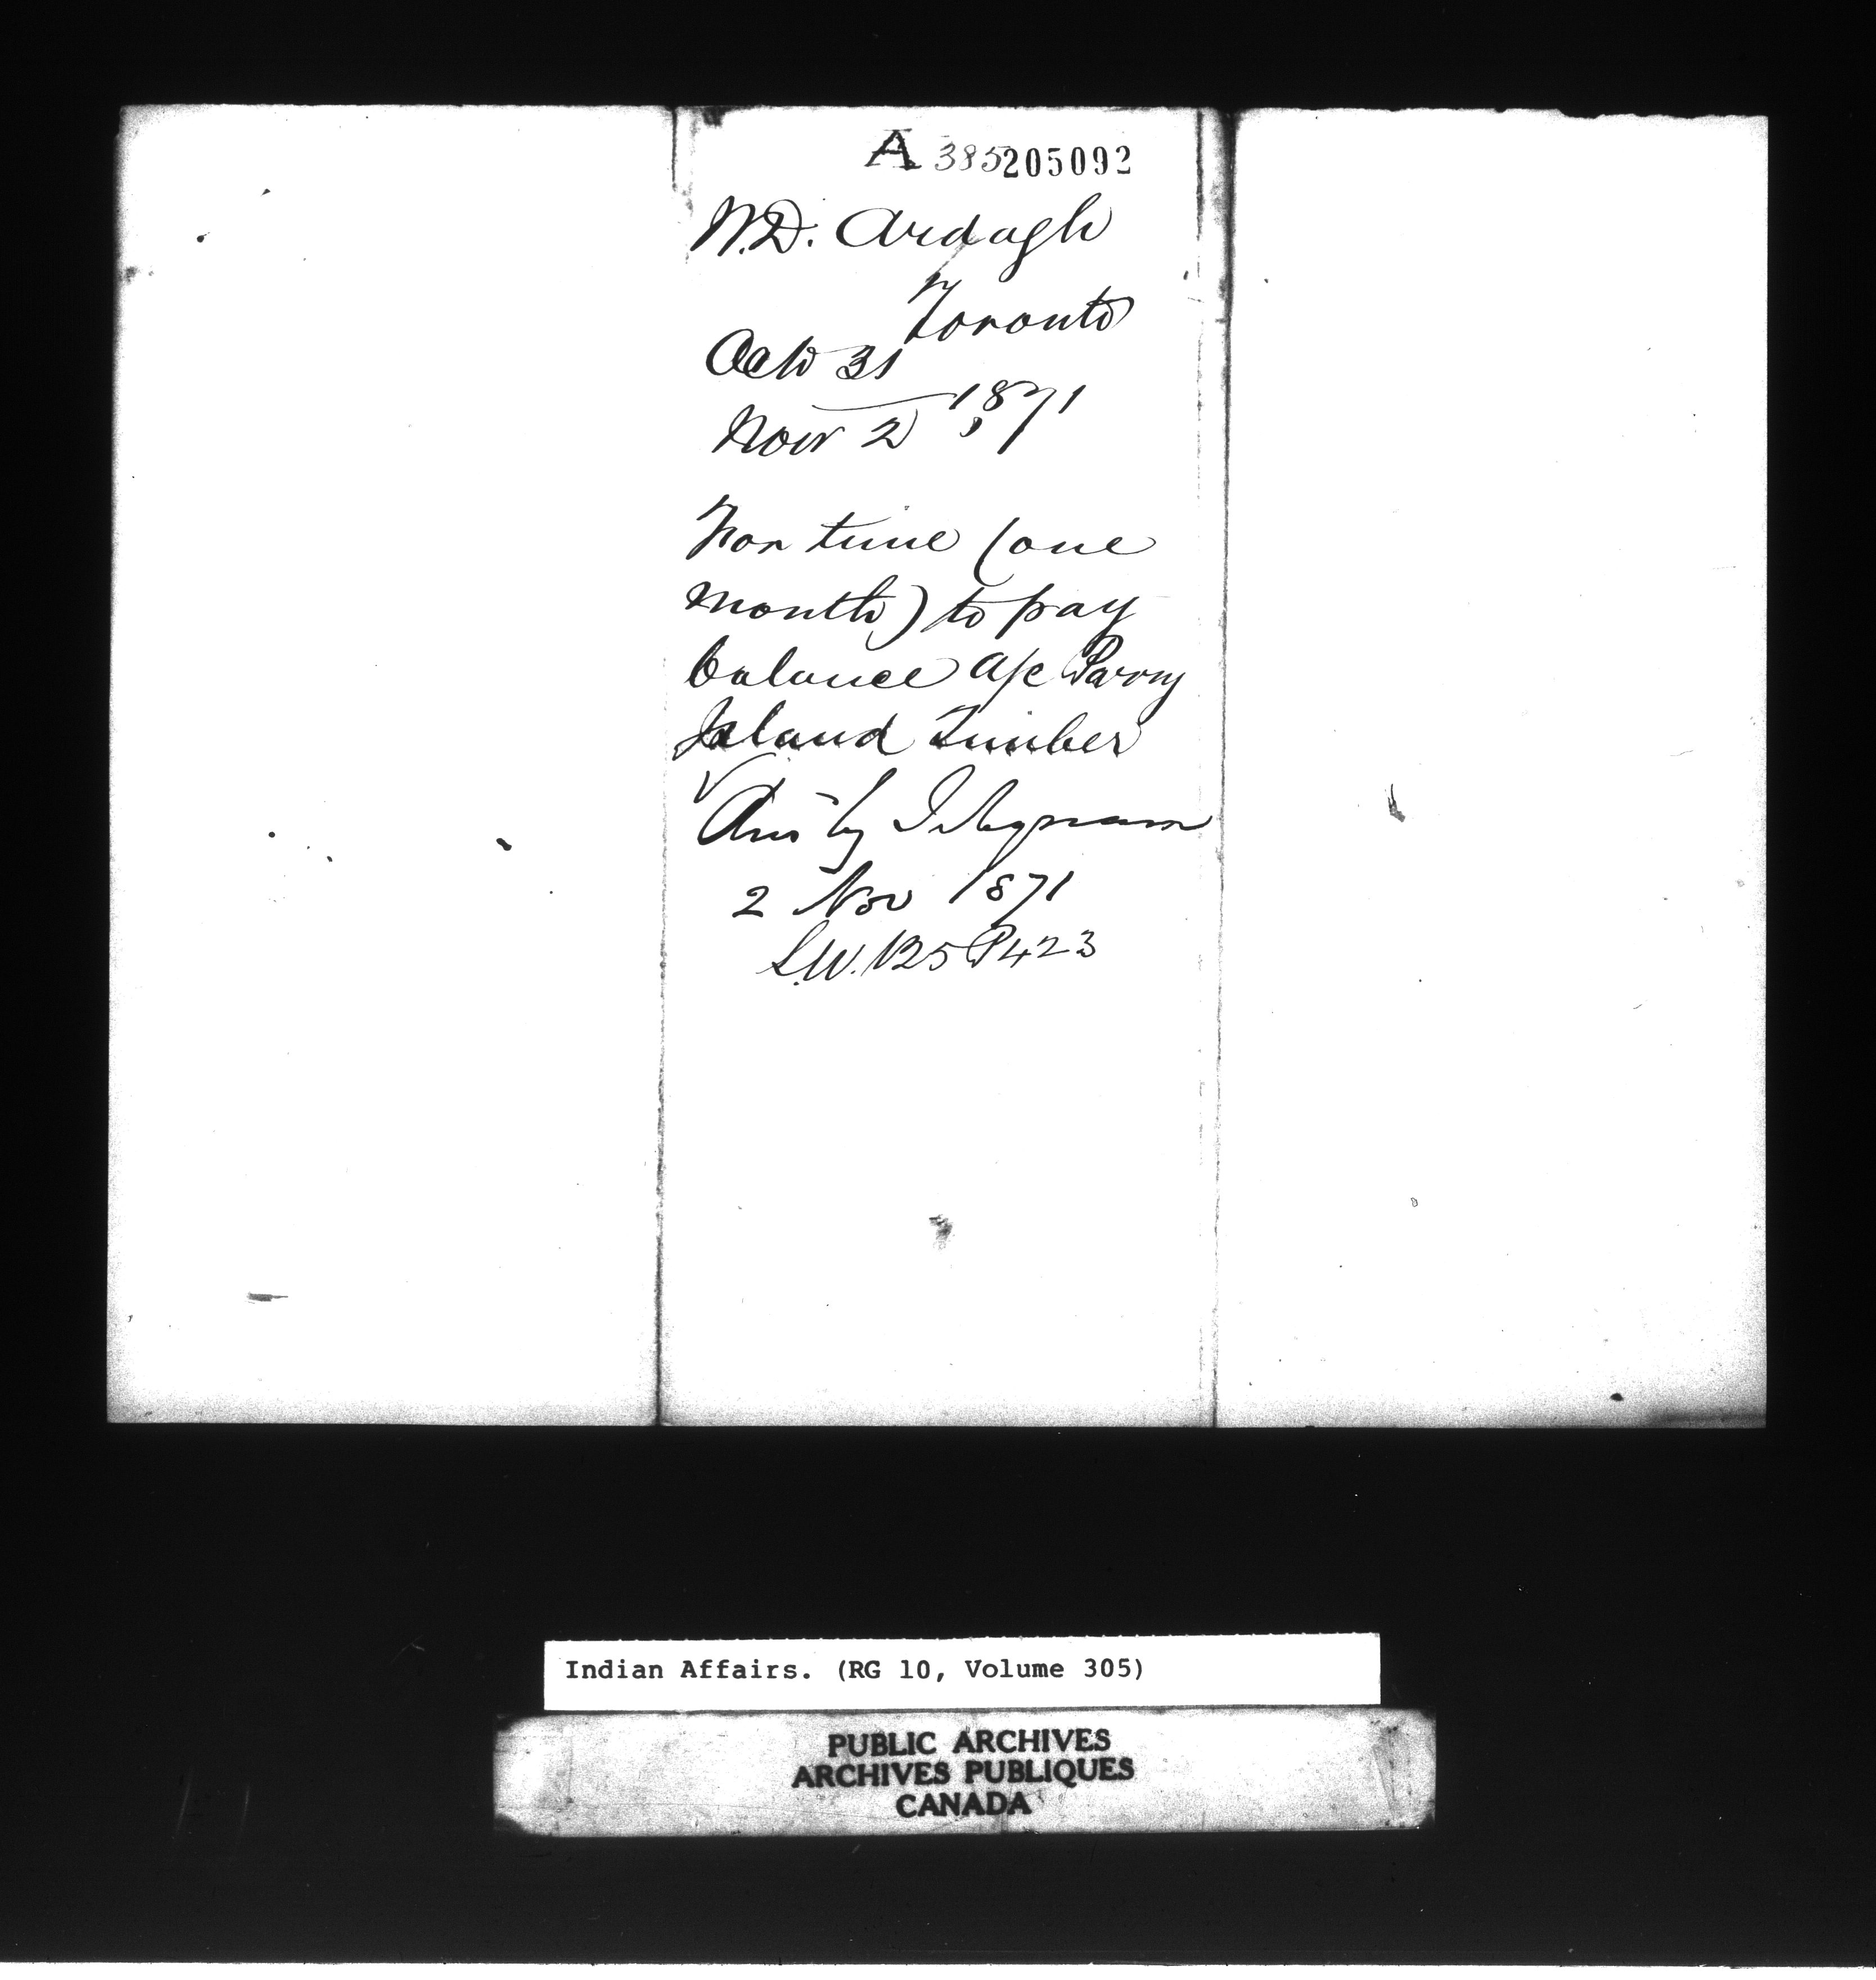 A 385 205092
W.D. Ardagh
Toronto
Octo 31
1871
Nov 2
For time (one
month) to pay
balance a/c Parry
Island Timber
Ans by Telegram
2 Nov 1871
L.W. 125 P423
Indian Affairs. (RG 10, Volume 305)
PUBLIC ARCHIVES
ARCHIVES PUBLIQUES
CANADA